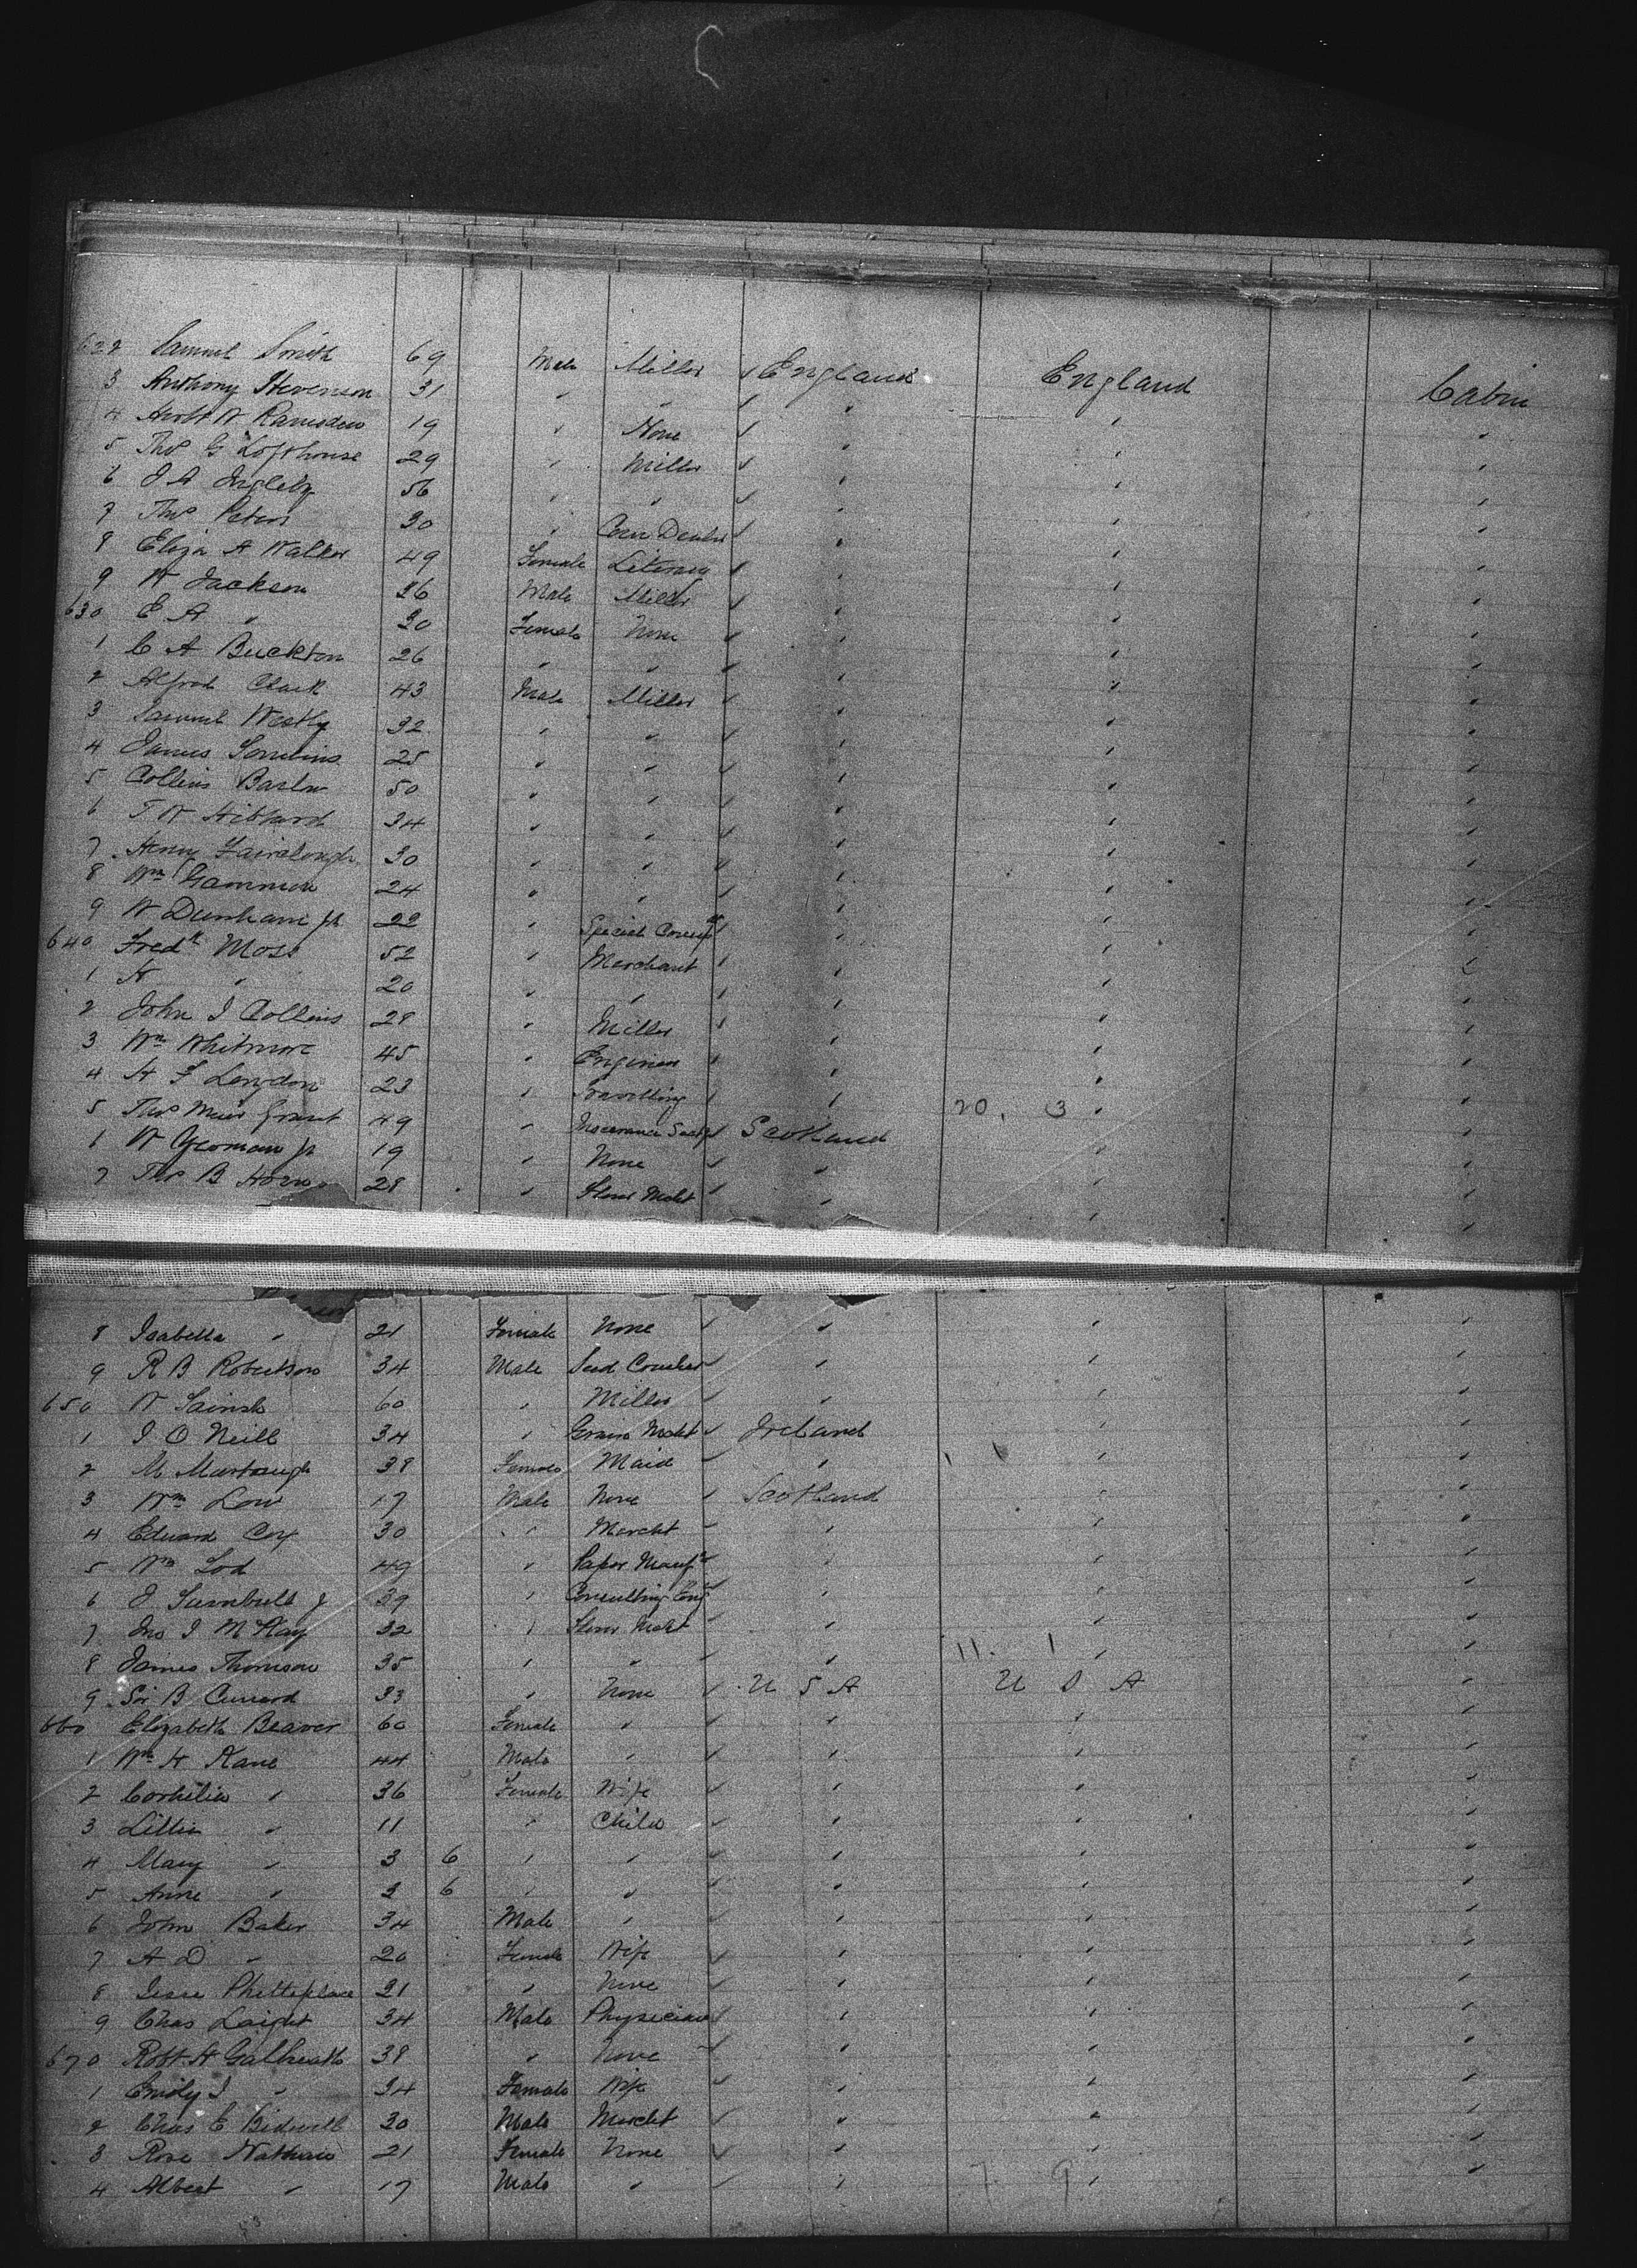 622 Samuel Smith 69 Male Miller England England Cabin
3 Anthony Stevenson 31 " " " " "
4 W Ramsden 19 " None " " "
5 Thos G Lofthouse 29 " Miller " " "
6 J A Ingleby 56 " " " " "
7 Thos Peters 30 " Corn Dealer " " "
8 Eliza A Walker 49 Female Literary " " "
9 W Jackson 36 Male Miller " " "
630 E A " 30 Female None " " "
1 C A Buckton 26 " " " " "
2 Alfred Clark 43 Male Miller " " "
3 Samuel Westby 32 " " " " "
4 James Tomkins 25 " " " " "
5 Collins Barlow 50 " " " " "
6 T W Hibbard 34 " " " " "
7 Henry Fairclough 30 " " " " "
8 Wm Gammon 24 " " " " "
9 W Dunham Jr 22 " Special " " "
640 Fredk Moss 52 " Merchant " " "
1 H " 20 " " " " "
2 John J Collins 28 " Miller " " "
3 Wm Whitmore 45 " Engineer " " "
4 H F Langdon 23 " Travelling " "
20. 3
5 Thos Muir Grant 49 " Insurance Secty Scotland " "
6 W Yeoman Jr 19 " None " " "
7 Thos B Horne 28 " Flour Mcht " " "
8 Isabella " 21 Female None " " "
9 R B Robertson 34 Male Seed Crusher " " "
650 W 60 " Miller " " "
1 J O Neill 34 " Grain Mcht Ireland "
1 1
2 M Murtaugh 38 Female Maid " " "
3 Wm Low 17 Male None Scotland " "
4 Edward Cox 30 " Mercht " " "
5 Wm Tod 49 " Paper Manfr " " "
6 J Turnbull Jr 39 " Consulting Engr " " "
7 Jno J McKay 32 " Flour Mcht " " "
11. 1
8 James Thomson 35 " " " " "
9 Sir B Cunard 33 " None U S A U S A "
660 Elizabeth Beaver 60 Female " " " "
1 Wm H Kane 44 Male " " " "
2 Cornelia " 36 Female Wife " " "
3 Lillie " 11 " Child " " "
4 Mary " 3 6 " " " " "
5 Anne " 2 6 " " " " "
6 John Baker 34 Male " " " "
7 A D " 20 Female Wife " " "
8 Jesse Phetteplace 21 " None " " "
9 Chas Laight 34 Male Physician " " "
670 Robt H Galbreath 38 " None " " "
1 Emily J " 34 Female Wife " " "
2 Chas E Bidwell 30 Male Mercht " " "
3 Rose Nathan 21 Female None " " "
4 Albert " 17 Male " " " "
7 9